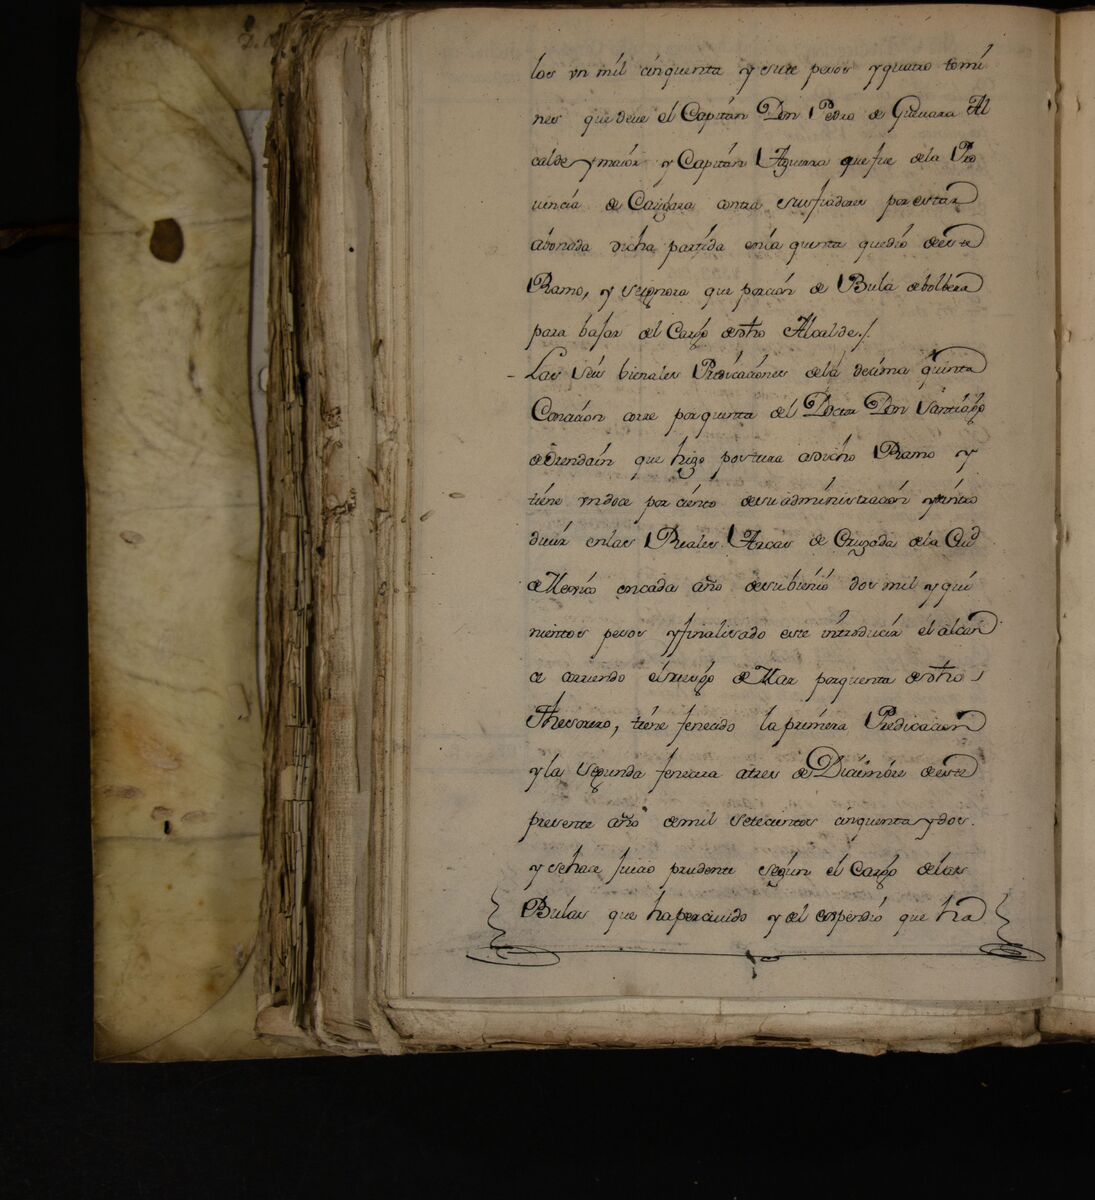 los vn mil cinquenta y siete pesos y quatro tomi
nes que deve el Capitán Don Pedro de Guevara Al
calde maior y Capitán Aguerra que fue de la Pro
uincia de contra sus fiadores por estar
abonada dicha partida en la quenta que dió de este
Ramo, y se ignora que porción de Bula debolbera
para bajar del Cargo de dho Alcalde /.
- Las seis bienales Predicaciones de la decima quinta
Concación corre por quenta del Doctor Don Santiágo
de que hizo postura a dicho Ramo y
tiene vn doce por ciento de su administración y intro
ducir en las Reales Arcas de Cruzada de la Ciud
de Mexico en cada año de su bienio dos mil y qui
nientos pesos y finalisado este introducir el alcan
ce corriendo el riesgo de Mar por quenta de dho
Thesorero, tiene fenecido la primera Predicacion
y la segunda fenecera a tres de Diciembre de este
presente año de mil setecientos cinquenta y dos.
y se hace juicio prudente según el Cargo de las
Bulas que ha percivido y el expendió que ha